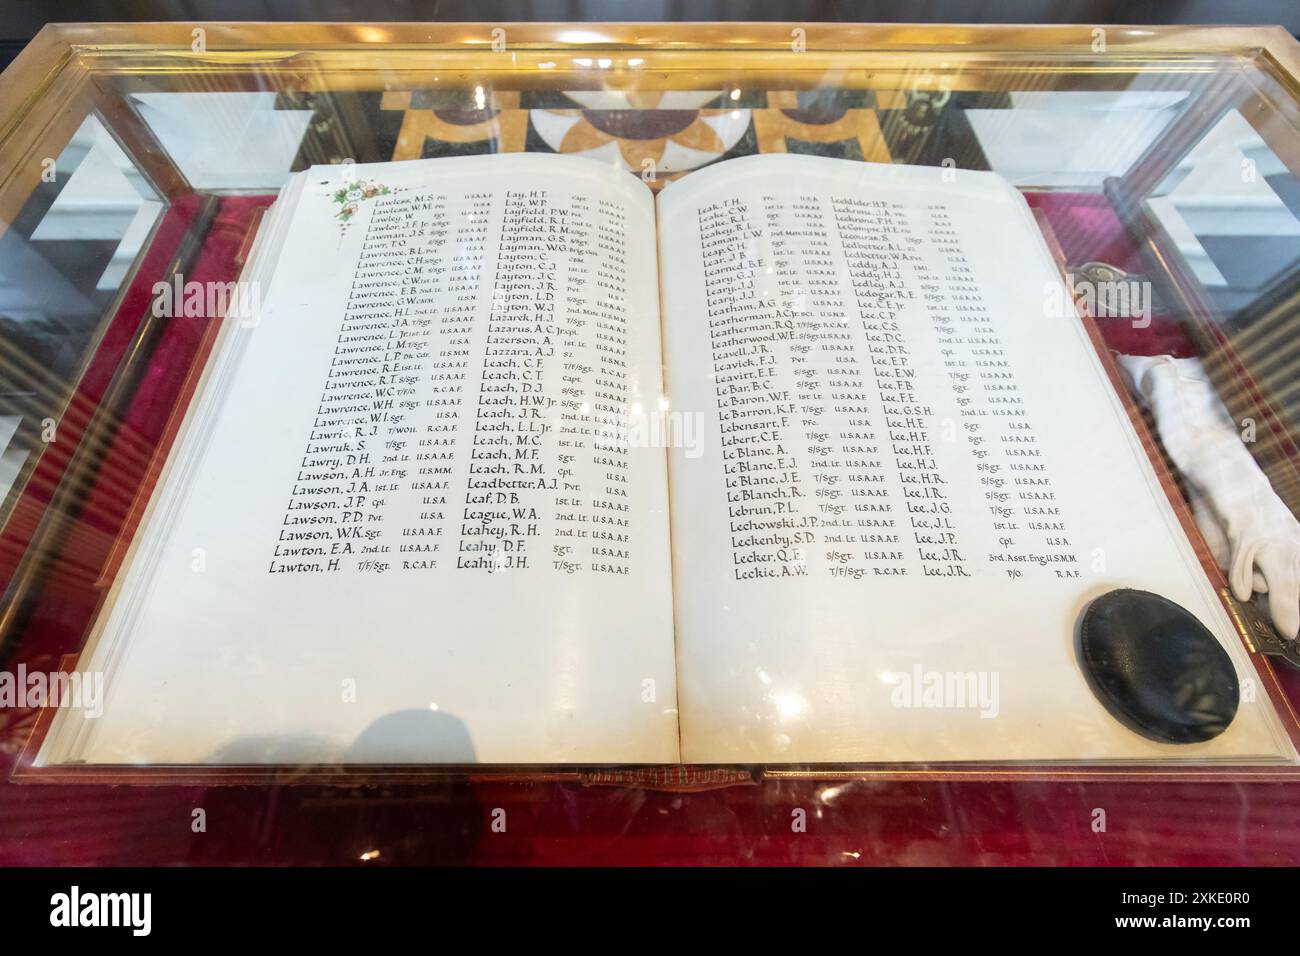 Lawless, M.S. Pfc. U.S.A.A.F.
Lawless, W.M. Pfc. U.S.A.
Lawley, W. Sgt. U.S.A.A.F.
Lawlor, J.F. Jr. S/Sgt. U.S.A.
Lawman, J.S. U.S.A.A.F.
Lawr, T.O. S/Sgt. U.S.A.A.F.
Lawrence, B.L. Pvt. U.S.A.
Lawrence, C.H. S/Sgt. U.S.A.A.F.
Lawrence, C.M. S/Sgt. U.S.A.A.F.
Lawrence, C.W. 1st. Lt. U.S.A.A.F.
Lawrence, E.B. 2nd. Lt. U.S.A.A.F.
Lawrence, G.W. CMM. U.S.N.
Lawrence, H.L. 2nd. Lt. U.S.A.A.F.
Lawrence, J.A. T/Sgt. U.S.A.A.F.
Lawrence, L. Jr. 1st. Lt. U.S.A.A.F.
Lawrence, L.M. T/Sgt. U.S.A.
Lawrence, L.P. Dk. Cdr. U.S.M.M.
Lawrence, R.E. 1st. Lt. U.S.A.A.F.
Lawrence, R.T. S/Sgt. U.S.A.A.F.
Lawrence, W.C. T/F/O R.C.A.F.
Lawrence, W.H. S/Sgt. U.S.A.A.F.
Lawrence, W.I. Sgt. U.S.A.
Lawrie, R.J. T/WO11. R.C.A.F.
Lawruk, S. T/Sgt. U.S.A.A.F.
Lawry, D.H. 2nd. Lt. U.S.A.A.F.
Lawson, A.H. Jr. Eng. U.S.M.M.
Lawson, J.A. 1st. Lt. U.S.A.A.F.
Lawson, J.P. Cpl. U.S.A.
Lawson, P.D. Pvt. U.S.A.
Lawson, W.K. Sgt. U.S.A.A.F.
Lawton, E.A. 2nd. Lt. U.S.A.A.F.
Lawton, H. T/F/Sgt. R.C.A.F.
Lay, H.T. Capt. U.S.A.A.F.
Lay, W.P. U.S.A.A.F.
Layfield, P.W. Pvt.
Layfield, R.L. 2nd. Lt.
Layfield, R.M. S/Sgt. U.S.A.A.F.
Layman, G.S. S/Sgt. U.S.A.A.F.
Layman, W.G. Brig. Gen. U.S.A.
Layton, C. CBM. U.S.C.G.
Layton, C.J. 1st. Lt. U.S.A.A.F.
Layton, J.C. S/Sgt. U.S.A.A.F.
Layton, J.R. Pvt. U.S.A.
Layton, L.D. S/Sgt. U.S.A.A.F.
Layton, W.J. 2nd. Mate. U.S.M.M.
Lazarek, H.J. T/Sgt. U.S.A.A.F.
Lazarus, A.C. Jr. Cpl. U.S.A.
Lazerson, A. 1st. Lt. U.S.A.A.F.
Lazzara, A.J. S2. U.S.N.R.
Leach, C.F. T/F/Sgt. R.C.A.F.
Leach, C.T. Capt. U.S.A.A.F.
Leach, D.J. S/Sgt. U.S.A.A.F.
Leach, H.W. Jr. S/Sgt. U.S.A.A.F.
Leach, J.R. 2nd. Lt. U.S.A.A.F.
Leach, L.L. Jr. 2nd. Lt. U.S.A.A.F.
Leach, M.C. 1st. Lt. U.S.A.A.F.
Leach, M.F. Sgt. U.S.A.A.F.
Leach, R.M. Cpl. U.S.A.
Leadbetter, A.J. Pvt. U.S.A.
Leaf, D.B. 1st. Lt. U.S.A.A.F.
League, W.A. 2nd. Lt. U.S.A.A.F.
Leahey, R.H. 2nd. Lt. U.S.A.A.F.
Leahy, D.F. Sgt. U.S.A.A.F.
Leahy, J.H. T/Sgt. U.S.A.A.F.
Leak, T.H. Pfc. U.S.A.
Leake, C.W. 1st. Lt. U.S.A.A.F.
Leake, R.L. Sgt. U.S.A.A.F.
Leakey, R.L. Pfc. U.S.A.
Leaman, L.W. 2nd. Mate. U.S.M.M.
Leap, C.H. Sgt. U.S.A.
Lear, J.B. 1st. Lt. U.S.A.A.F.
Learned, B.E. Sgt. U.S.A.A.F.
Leary, G.J. 1st. Lt. U.S.A.A.F.
Leary, J.J. U.S.A.A.F.
Leary, J.J. 2nd. Lt. U.S.A.A.F.
Leatham, A.G. S/Sgt. U.S.A.A.F.
Leatherman, A.C. Jr. SC1. U.S.N.
Leatherman, R.Q. T/F/Sgt. R.C.A.F.
Leatherwood, W.E. S/Sgt. U.S.A.A.F.
Leavell, J.R. S/Sgt. U.S.A.A.F.
Leavick, F.J. Pvt. U.S.A.
Leavitt, E.E. S/Sgt. U.S.A.A.F.
LeBar, B.C. S/Sgt. U.S.A.A.F.
LeBaron, W.F. 1st. Lt. U.S.A.A.F.
LeBarron, K.F. T/Sgt. U.S.A.A.F.
Lebensart, F. Pfc. U.S.A.
Lebert, C.E. T/Sgt. U.S.A.A.F.
LeBlanc, A. S/Sgt. U.S.A.A.F.
LeBlanc, E.J. 2nd. Lt. U.S.A.A.F.
LeBlanc, J.E. T/Sgt. U.S.A.A.F.
LeBlanch, R. S/Sgt. U.S.A.A.F.
Lebrun, P.L. T/Sgt. U.S.A.A.F.
Lechowski, J.P. 2nd. Lt. U.S.A.A.F.
Leckenby, S.D. 2nd. Lt. U.S.A.A.F.
Lecker, Q.E. S/Sgt. U.S.A.A.F.
Leckie, A.W. T/F/Sgt. R.C.A.F.
Lecklider, H.P. U.S.N.
Leckrone, J.A. Pvt. U.S.A.
Leckrone, P.H. R.A.F.
LeCompte, H.E. U.S.N.
Lecouras, S. T/Sgt. U.S.A.A.F.
Ledbetter, A.L. U.S.A.A.F.
Ledbetter, W.A. Pvt. U.S.A.
Leddy, A.J. FM1. U.S.N.
Leddy, H.J. 2nd. Lt. U.S.A.A.F.
Ledley, A.J. S/Sgt. U.S.A.A.F.
Ledogar, R.E. S/Sgt. U.S.A.A.F.
Lee, C.E. Jr. 1st. Lt. U.S.A.A.F.
Lee, C.P. T/Sgt. U.S.A.A.F.
Lee, C.S. T/Sgt. U.S.A.A.F.
Lee, D.C. 2nd. Lt. U.S.A.A.F.
Lee, D.R. Cpl. U.S.A.
Lee, E.P. 1st. Lt. U.S.A.A.F.
Lee, E.W. T/Sgt. U.S.A.A.F.
Lee, F.B. Sgt. U.S.A.A.F.
Lee, F.E. S/Sgt. U.S.A.A.F.
Lee, G.S.H. 2nd. Lt. U.S.A.A.F.
Lee, H.E. Sgt. U.S.A.
Lee, H.F. Sgt. U.S.A.A.F.
Lee, H.F. S/Sgt. U.S.A.A.F.
Lee, H.J. S/Sgt. U.S.A.A.F.
Lee, H.R. S/Sgt. U.S.A.A.F.
Lee, I.R. S/Sgt. U.S.A.A.F.
Lee, J.G. T/Sgt. U.S.A.A.F.
Lee, J.L. 1st. Lt. U.S.A.A.F.
Lee, J.P. Cpl. U.S.A.
Lee, J.R. 3rd. Asst. Eng. U.S.M.M.
Lee, J.R. P/O. R.A.F.
alamy
Image ID: 2XKE0R0
www.alamy.com